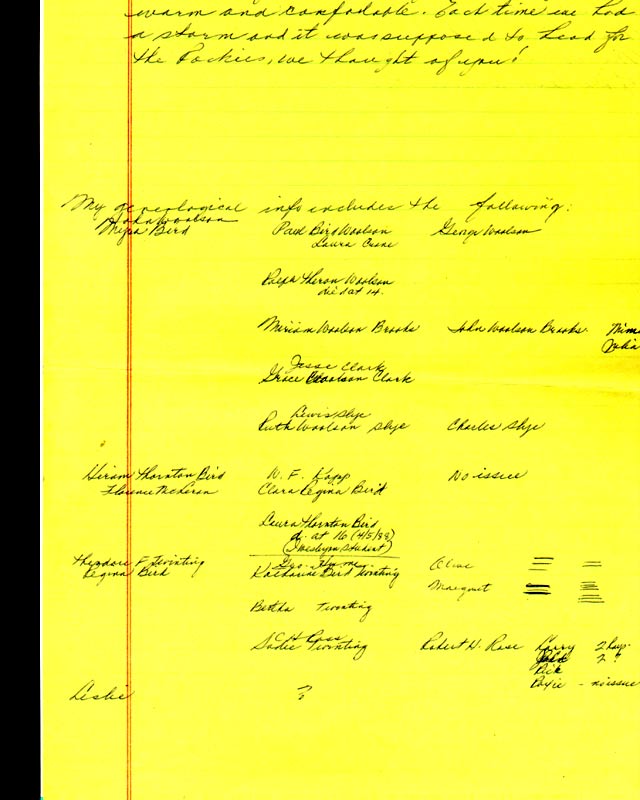 warm and comfortable. Each time we had
a storm and it was supposed to head for
the Rockies, we thought of you!
My geneological info includes the following:
John Woolson
Myra Bird Paul Bird Woolson George Woolson
Laura Crane
Ralph Theron Woolson
died at 14.
Miriam Woolson Brooks John Woolson Brooks
Julia
Jesse Clark
Grace Woolson Clark
Lewis Slye
Ruth Woolson Slye Charles Slye
Hiram Thornton Bird W. F. Kopp No issue
Florence Clara Regina Bird
Laura Thornton Bird
d. at 16 (4/5/89)
(Iowa Wesleyan student)
Theodore F. Twinting Geo. Olive
Regina Bird Katharine Bird Twinting
Margaret
Bertha Twinting
C H Rose
Sadie Twinting Robert H. Rose Larry 2 boys
2 ?
Dick
Roxie - no issue
Leslie ?